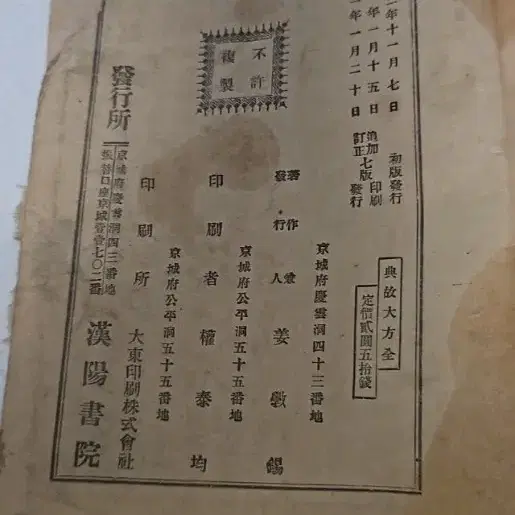 年十一月七日 初版發行
年一月十五日 追加印刷
年一月二十日 訂正七版發行
典故大方全
定價貳圓五拾錢
不許
複製
京城府慶雲洞四十三番地
著作兼
發行人 姜斅錫
京城府公平洞五十五番地
印刷者 權泰均
京城府公平洞五十五番地
印刷所 大東印刷株式會社
發行所
京城府慶雲洞四三番地
振替口座京城壹壹七〇二番
漢陽書院